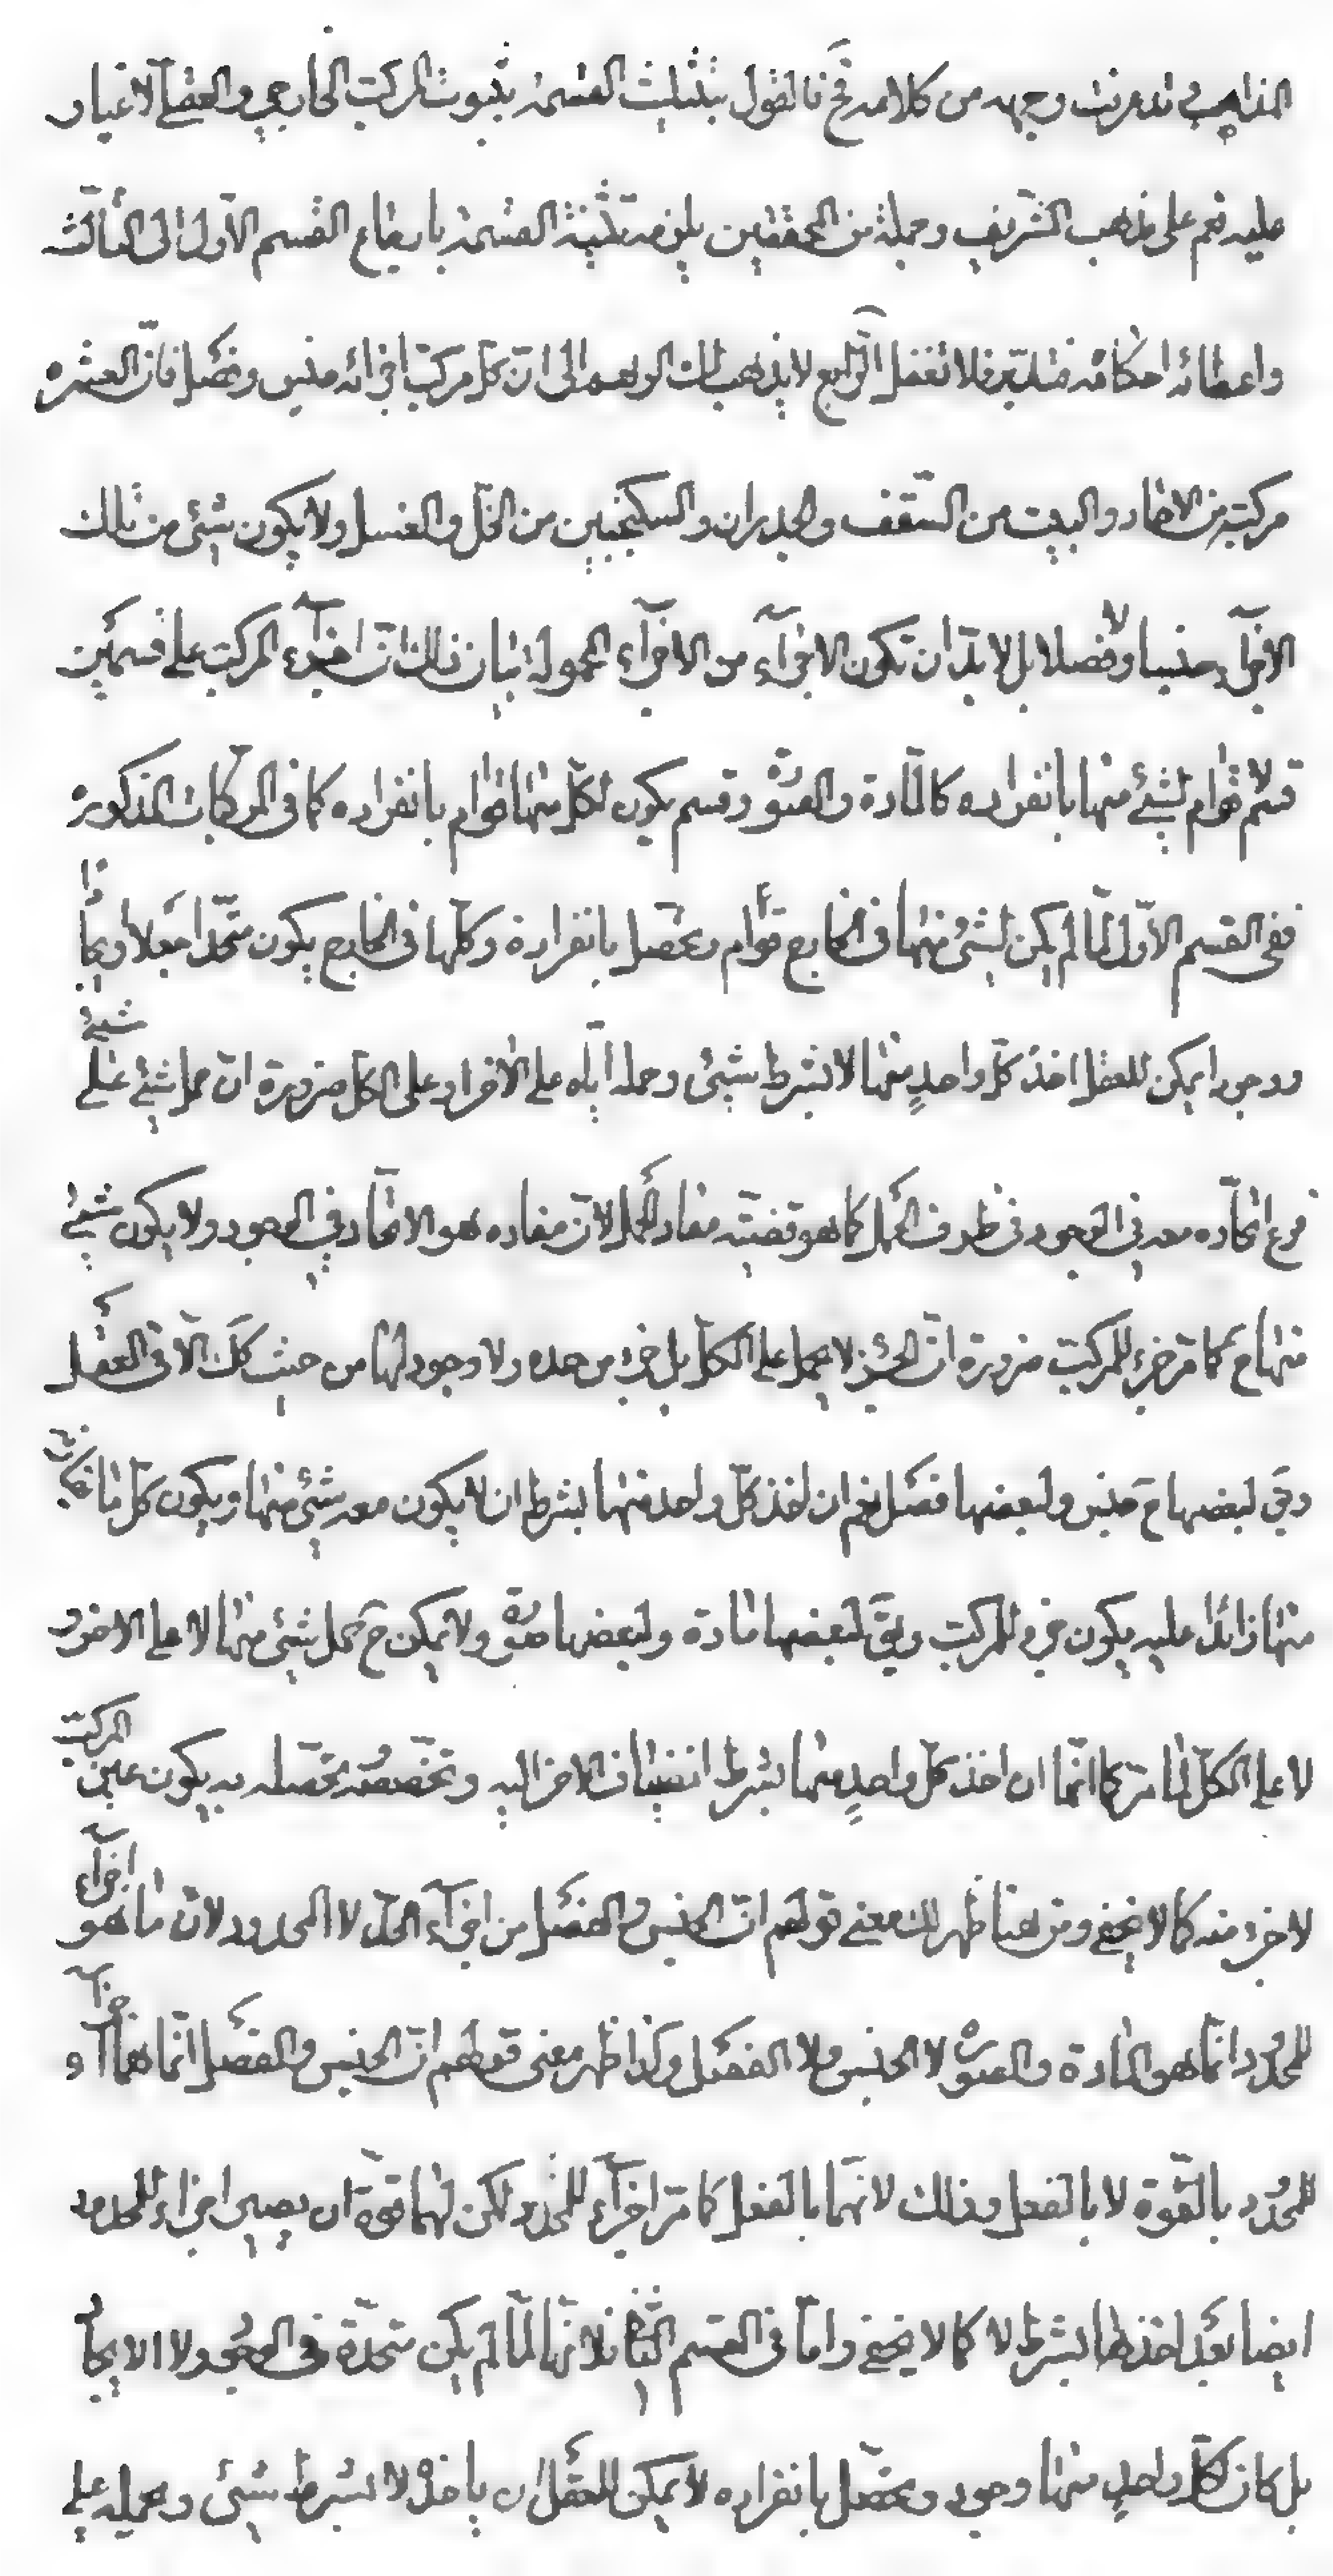 المذاهب قد عرفت وجهه من كلامه فح فالقول بتثليث القسمة بثبوت المركب الخارجي والعقلي لا غبار
عليه نعم على مذهب الشريف وجملة من المحققين يلزمه تثنية القسمة بارجاع القسم الاول الى الثالث
واعطائه احكامه فتدبر فلا تغفل الرابع لا يذهب بك الوهم الى ان كل مركب اجزائه جنس وفصل فان العشرة
مركبة من الاحاد والبيت من السقف والجدران والسكنجبين من الخل والعسل ولا يكون شيئ من تلك
الاجزآء جنسا ولا فصلا بل لا بد ان تكون الاجزآء من الاجزآء المحمولة بيان ذلك ان اجزآء المركب على قسمين
قسم لا قوام لشيئ منها بانفراده كالمادة والصورة وقسم يكون لكل منها قوام بانفراده كما في المركبات المذكورة
ففي القسم الاول لما لم يكن لشيئ منها في الخارج قوام وتحصل بانفراده وكلها في الخارج يكون متحدا جعلا وايجادا
ووجودا يمكن للعقل اخذ كل واحد منها لا بشرط شيئ وحمله اياه على الافراد وعلى الكل ضرورة ان حمل شيئ على شيئ
فرع اتحاده معه في الوجود في ظرف الحمل كما هو قضية مفاد الحمل لان مفاده هو الاتحاد في الوجود ولا يكون شيئ
منها ح كما مر جزء للمركب ضرورة ان الجزء لا يحمل على الكل بل جزء من حده ولا وجود لها من حيث كك الا في العقل
وبقى لبعضها ح جنس ولبعضها فصل نعم ان اخذ كل واحد منها بشرط ان لا يكون معه شيئ منها ويكون كل ما قارنه
منها زائدا عليه يكون جزء للمركب وبقى لبعضها مادة ولبعضها صورة ولا يمكن ح حمل شيئ منها لا على الاخر و
لا على الكل لما مر كما انها ان اخذ كل واحد منها بشرط انضياف الاخر اليه وتخصصه تحصله به يكون عين المركب
لا جزء منه كما لا يخفى ومن هنا ظهر لك معنى قولهم ان الجنس والفصل من اجزآء الحد لا المحدود لان ما هو اجزآء
للمحدود انما هو المادة والصورة لا الجنس ولا الفصل وكذا ظهر معنى قولهم ان الجنس والفصل انما هما جزآء
للمحدود بالقوة لا بالفعل وذلك لانهما بالفعل كما مر اجزآء للحد ولكن لهما قوة ان يصير اجزاء للمحدود
ايضا بعد اخذهما بشرط لا كما لا يخفى واما في القسم الثاني فلانها لما لم يكن متحدة في الوجود ولا الايجاد
بل كان لكل واحد منها وجود وتحصل بانفراده لا يمكن للعقل ان ياخذه لا بشرط شيئ وحمله على